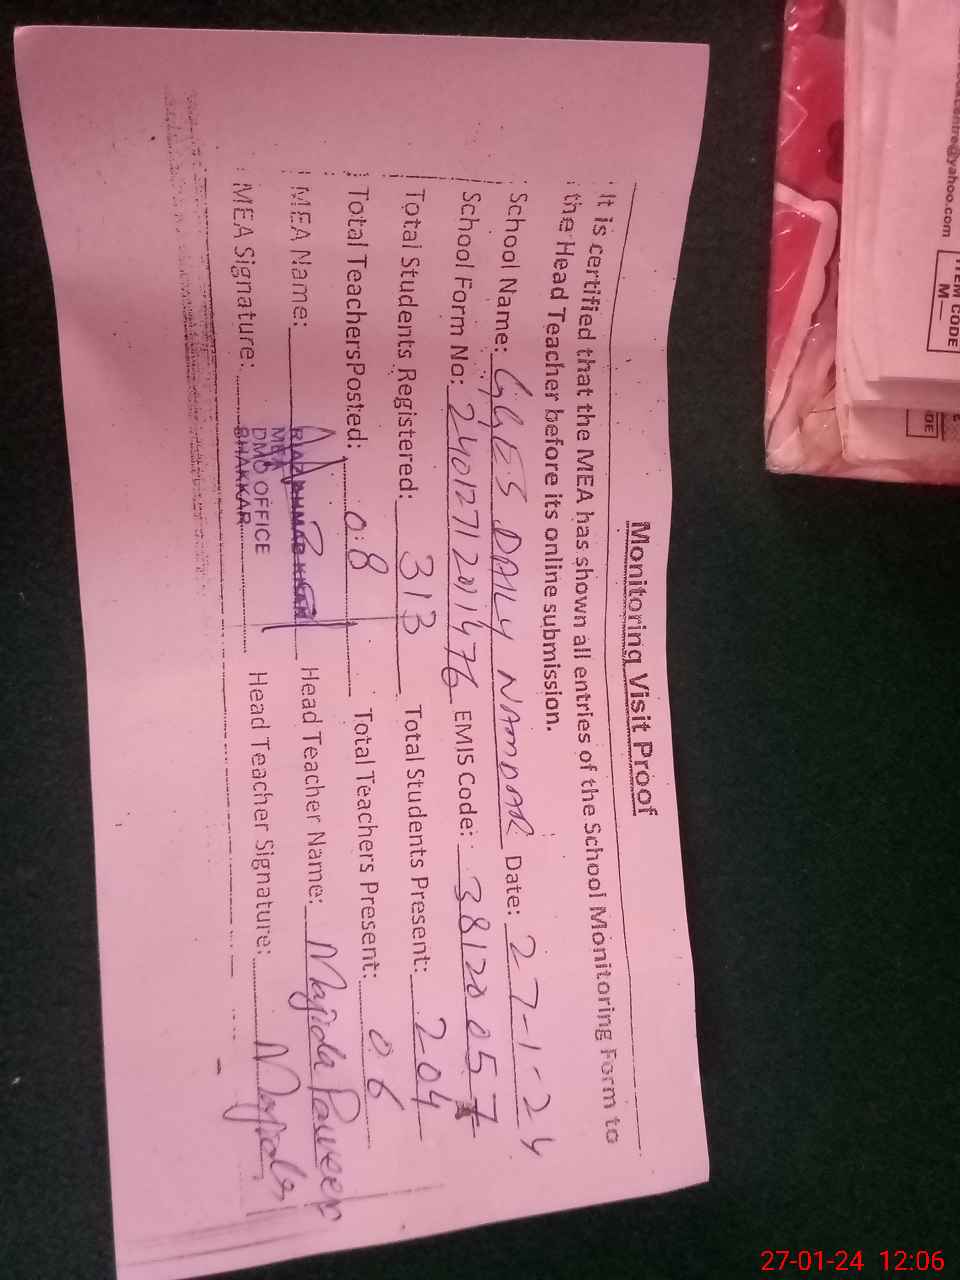 Monitoring Visit Proof
It is certified that the MEA has shown all entries of the School Monitoring Form to
the Head Teacher before its online submission.
School Name: GGES DAILY NAMDAR Date: 27-1-24
School Form No: 2401271201476 EMIS Code: 38120057
Total Students Registered: 313 Total Students Present: 204
Total TeachersPosted: 08 Total Teachers Present: 06
MEA Name: Head Teacher Name: Majida Parveen
MEA Signature: Head Teacher Signature: Majida
RIAZ AHMAD KHAN
MEA
DMO OFFICE
BHAKKAR
centre@yahoo.com
ITEM CODE
M—
27-01-24 12:06